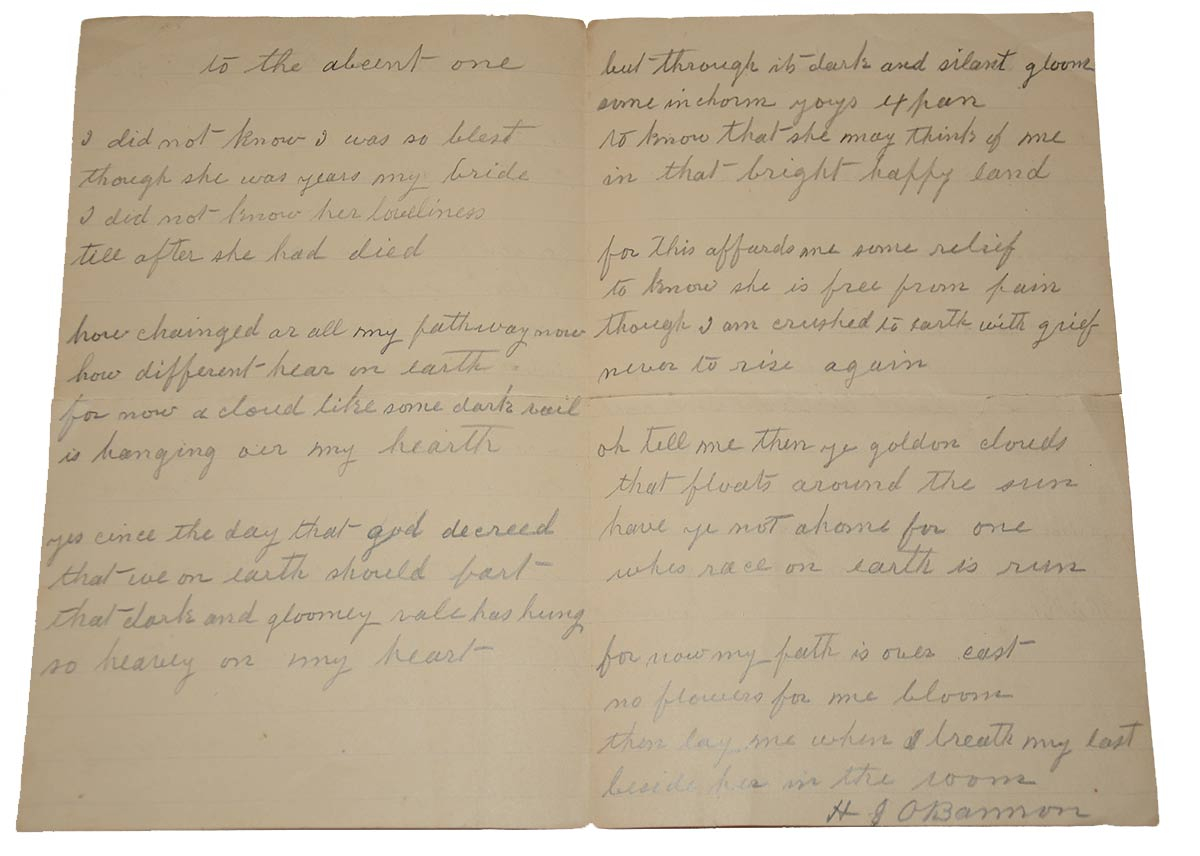 to the abcent one
I did not know I was so blest
though she was years my bride
I did not know her loveliness
till after she had died
how chainged ar all my pathway now
how different hear on earth
for now a cloud like some dark vail
is hanging oer my hearth
yes cince the day that god decreed
that we on earth should part
that dark and gloomey vale has hung
so heavey on my heart
but through its dark and silant gloom
some inchorm yoys expan
to know that she may think of me
in that bright happy land
for this affards me some relief
to know she is free from pain
though I am crushed to earth with grief
never to rise again
oh tell me then ye goldon clouds
that floats around the sun
have ye not a home for one
whes race on earth is run
for now my path is over cast
no flowers for me bloom
then lay me when I breath my last
beside her in the room
H J OBannon